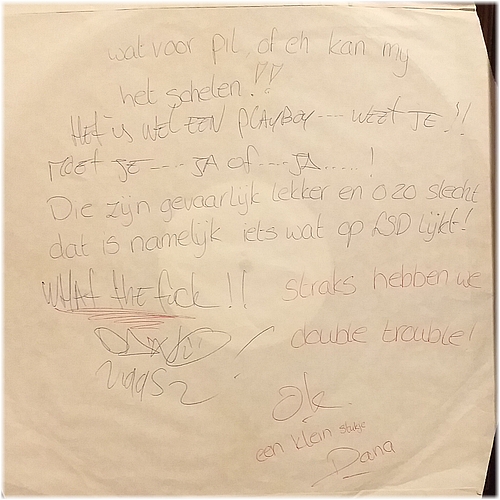 wat voor pil, of eh kan mij
het schelen!!!
HET is WEL EEN PLAYBOY---- WEET JE!!
MOET JE---- JA of.... JA......!
Die zijn gevaarlijk lekker en o zo slecht
dat is namelijk iets wat op LSD lijkt!
WHAT the fuck!!
straks hebben we
double trouble!
Ok
een klein stukje
Dana